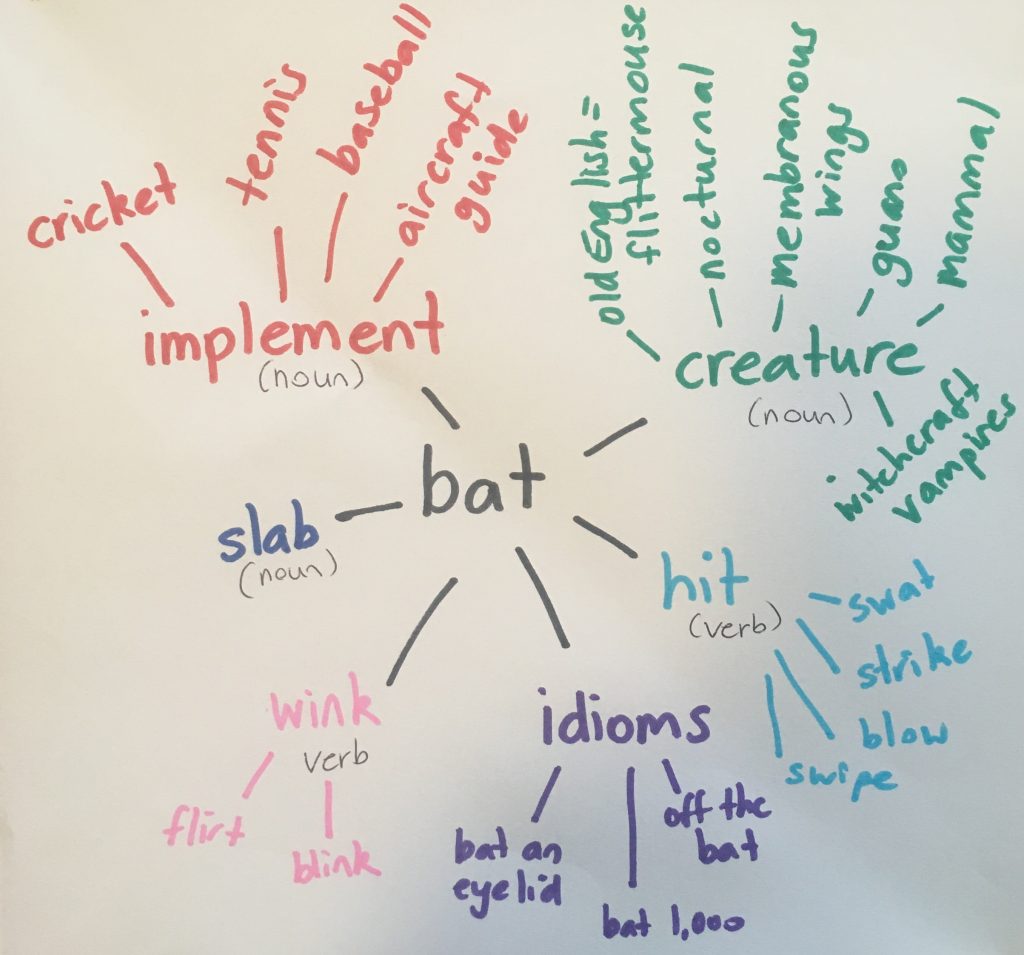 cricket
tennis
baseball
aircraft
guide
implement
(noun)
old English =
flittermouse
nocturnal
membranous
wings
guano
mammal
creature
(noun)
witchcraft
vampires
bat
slab
(noun)
hit
(verb)
swat
strike
blow
swipe
wink
verb
flirt
blink
idioms
bat an
eyelid
bat 1,000
off the
bat